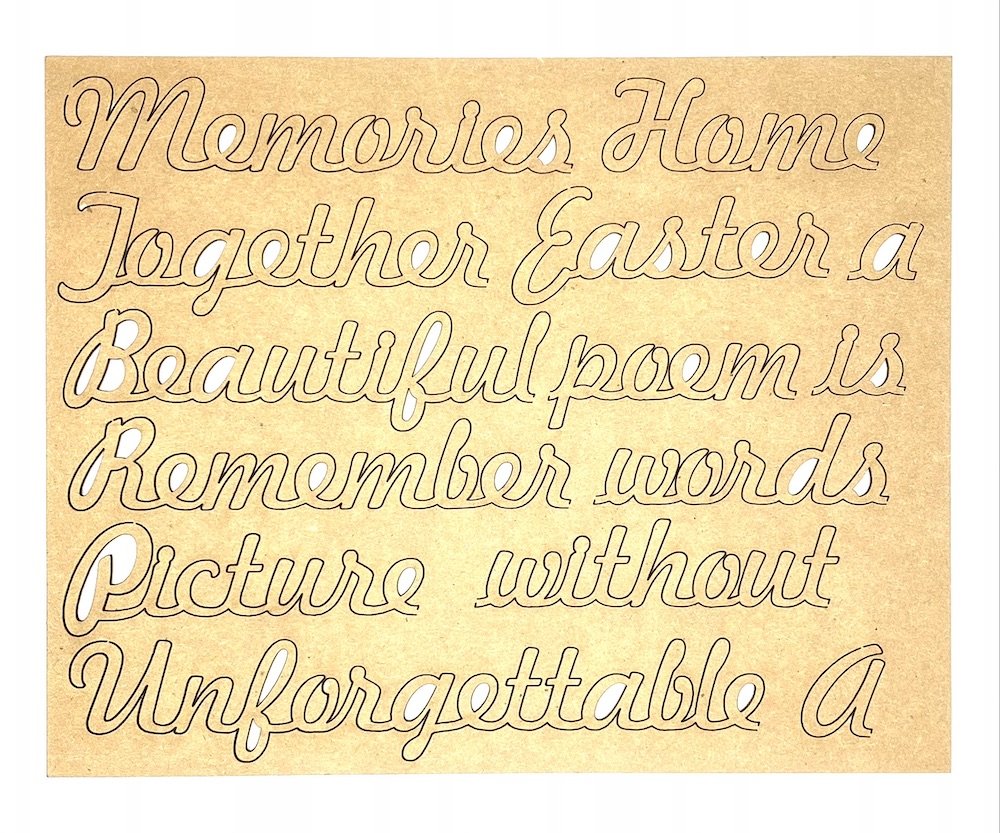 Memories Home
Together Easter a
Beautiful poem is
Remember words
Picture without
Unforgettable A